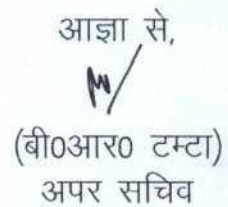 आज्ञा से,
(बी0आर0 टम्टा)
अपर सचिव